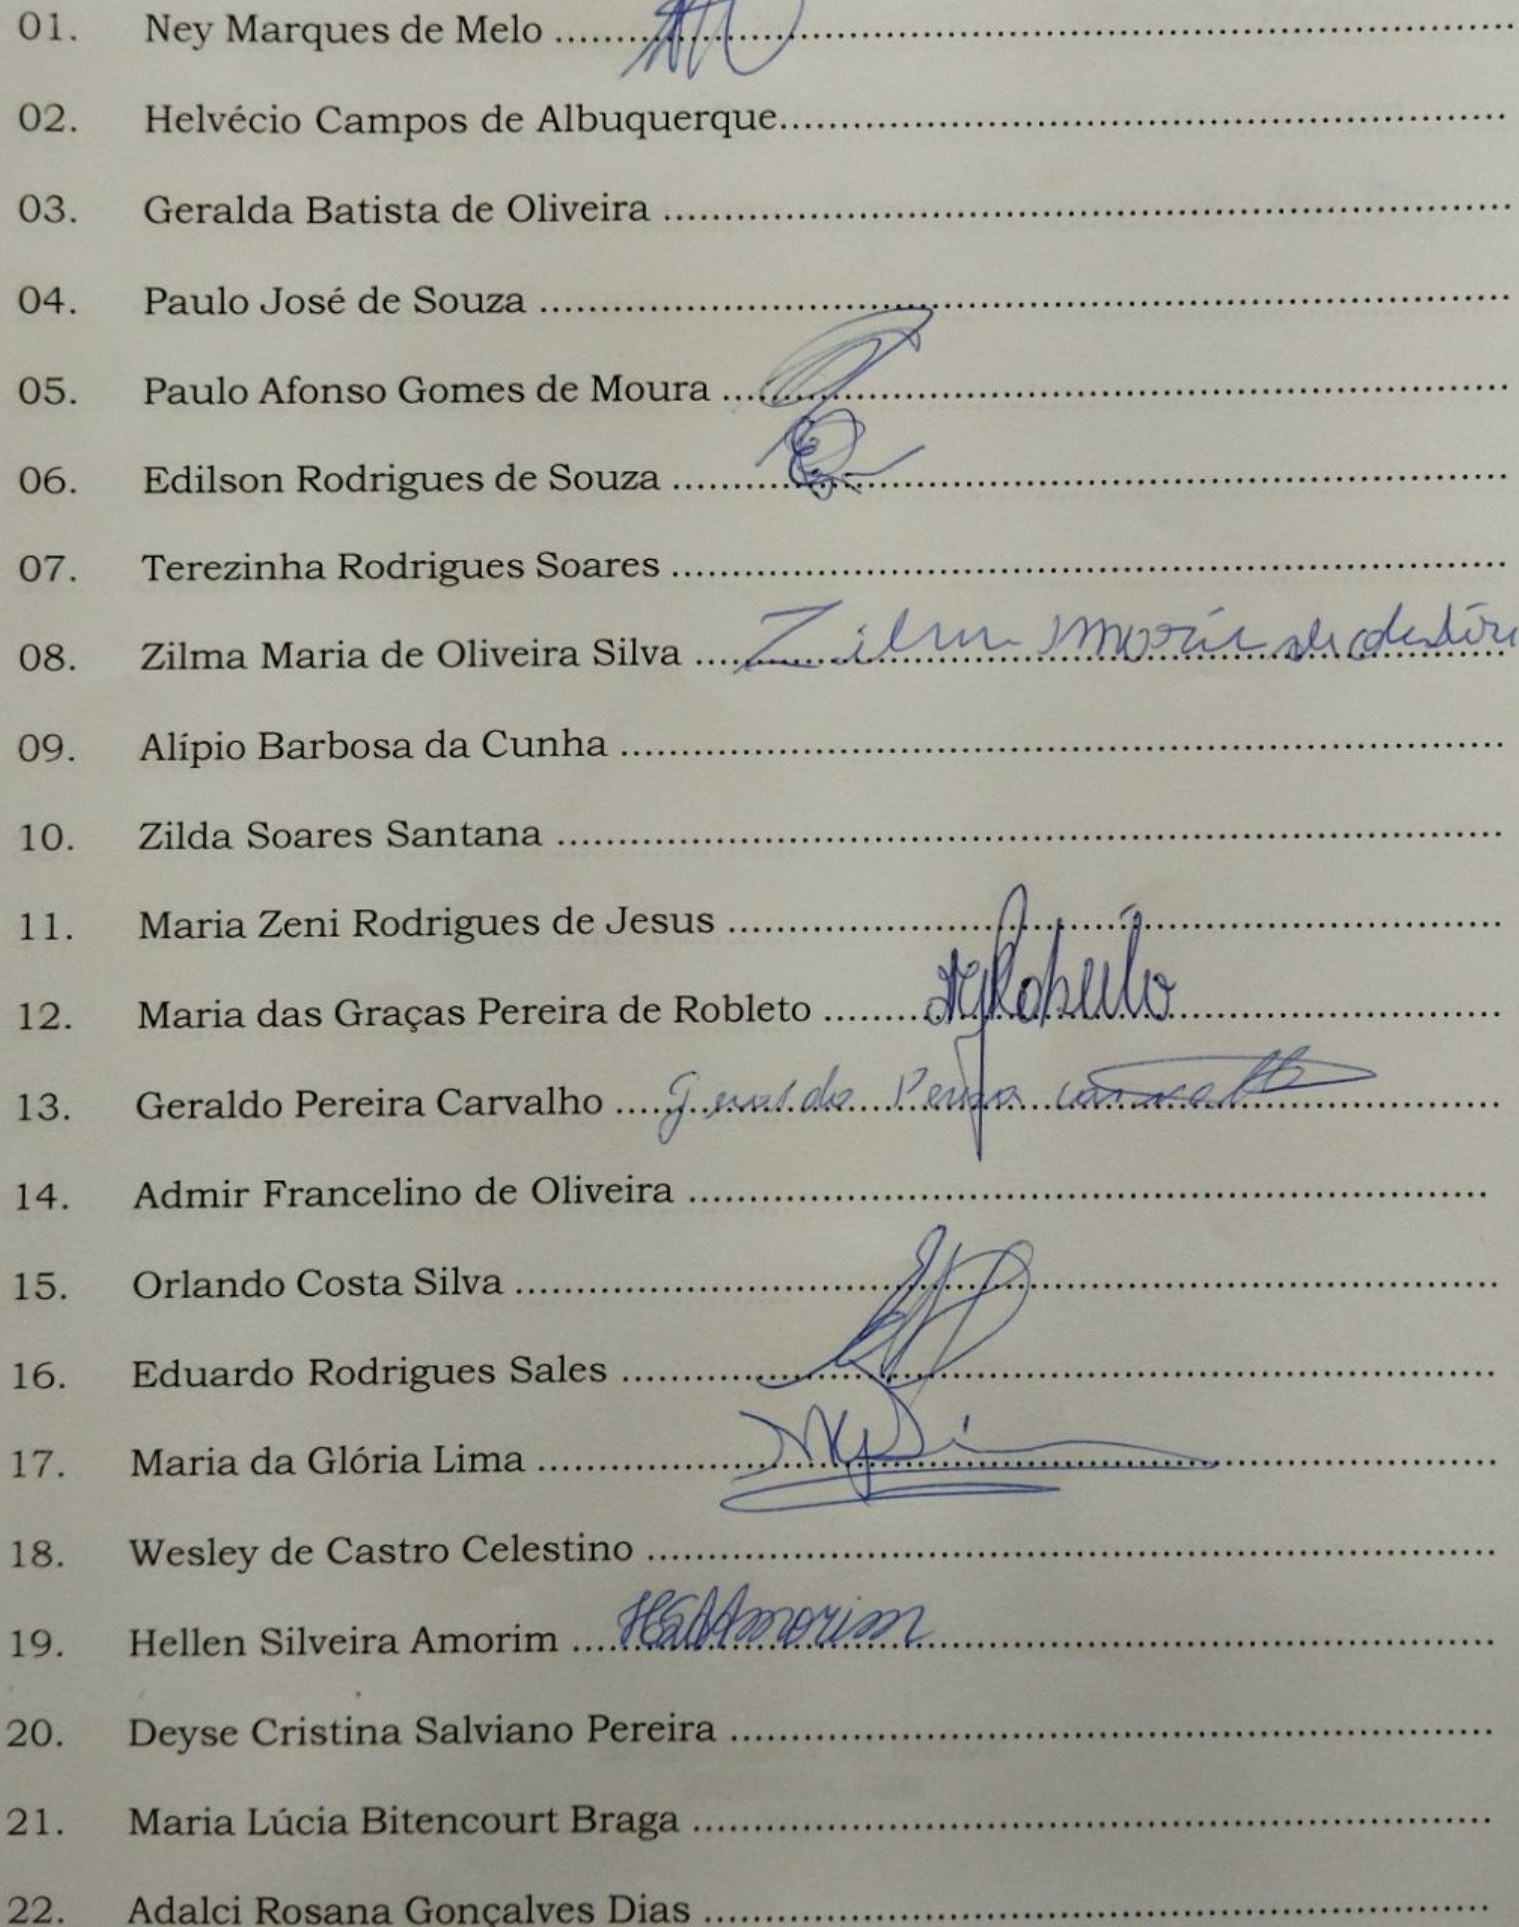 01. Ney Marques de Melo ....................
02. Helvécio Campos de Albuquerque....................
03. Geralda Batista de Oliveira ....................
04. Paulo José de Souza ....................
05. Paulo Afonso Gomes de Moura ....................
06. Edilson Rodrigues de Souza ....................
07. Terezinha Rodrigues Soares ....................
08. Zilma Maria de Oliveira Silva .................... Zilma Maria de
09. Alípio Barbosa da Cunha ....................
10. Zilda Soares Santana ....................
11. Maria Zeni Rodrigues de Jesus ....................
12. Maria das Graças Pereira de Robleto ....................
13. Geraldo Pereira Carvalho .................... Geraldo Pereira Carvalho
14. Admir Francelino de Oliveira ....................
15. Orlando Costa Silva ....................
16. Eduardo Rodrigues Sales ....................
17. Maria da Glória Lima ....................
18. Wesley de Castro Celestino ....................
19. Hellen Silveira Amorim .................... Amorim
20. Deyse Cristina Salviano Pereira ....................
21. Maria Lúcia Bitencourt Braga ....................
22. Adalci Rosana Gonçalves Dias ....................